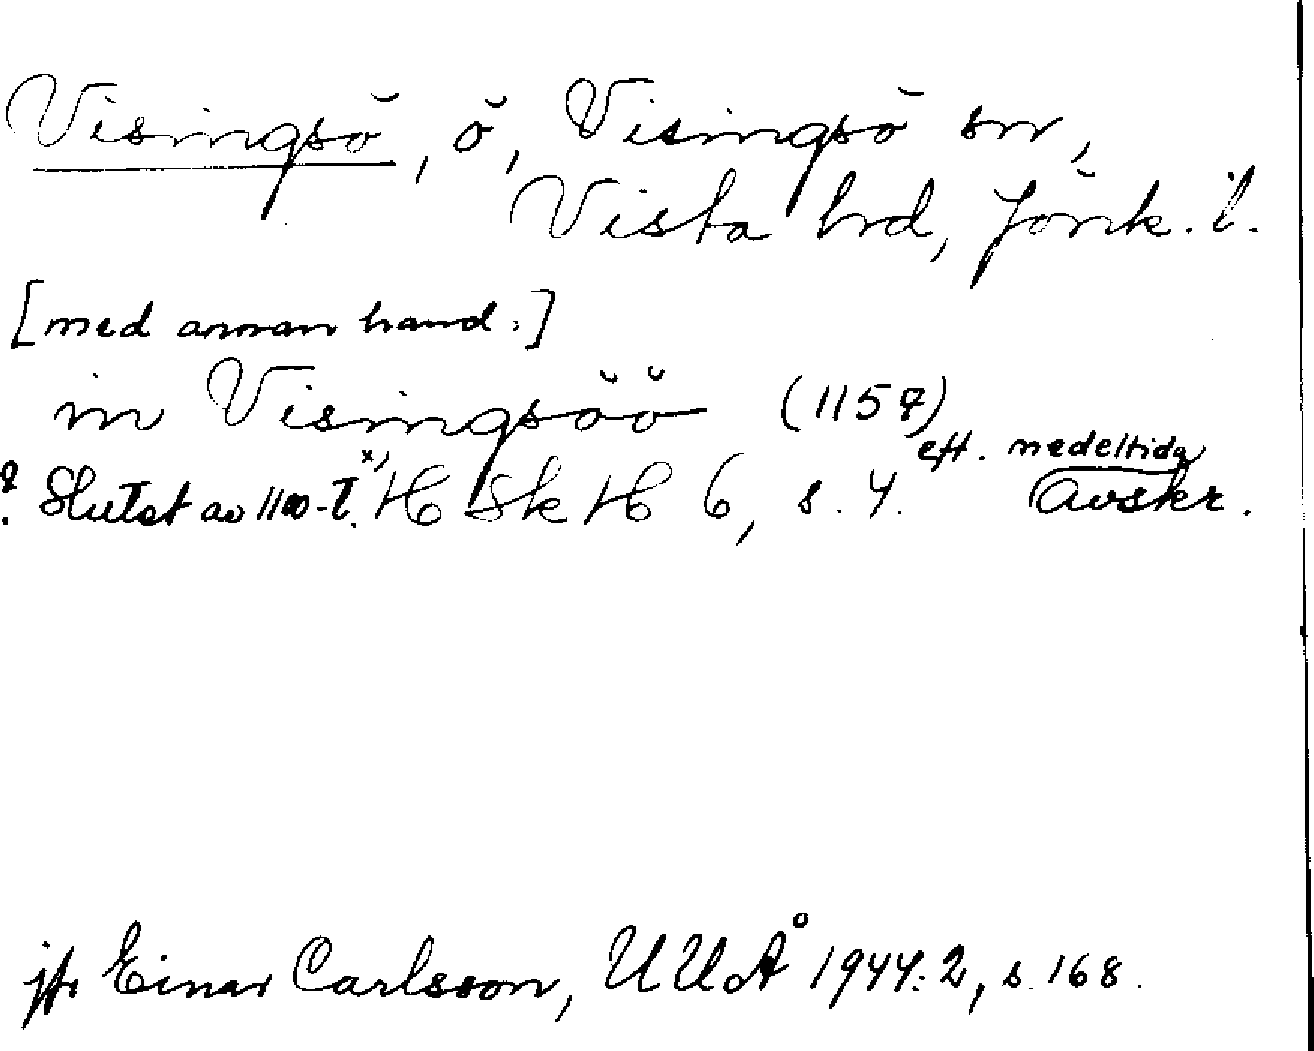 Visingsö, ö, Visingsö sn,
Vista hrd, Jönk. l.
[med annan hand:]
in Visingsöö (1157)
eft. medeltida
? Slutet av 1100-t. x) H Sk H 6, s. 4. avskr.
jfr Einar Carlsson, UUÅ 1944:2, s. 168.